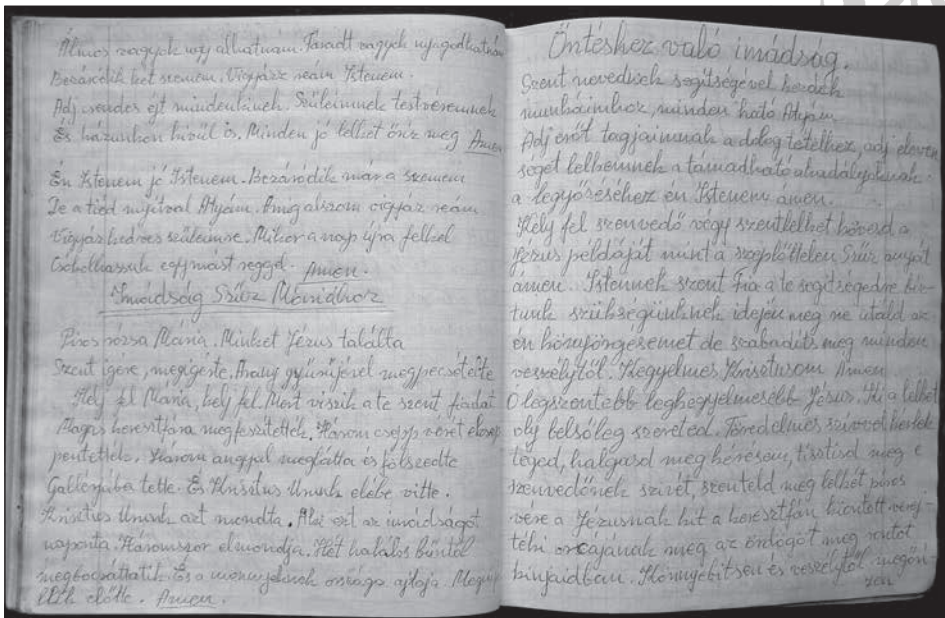 Álmos vagyok ugy alhatnám. Fáradt vagyok nyugodhatnám
Bezáródik két szemem. Vigyázz reám Istenem.
Adj csendes éjt mindenkinek. Szüleimnek testvéremnek
És házunkon kivül is. Minden jó lelket őriz meg Amen
Én Istenem jó Istenem. Bezáródik már a szemem
De a tiéd nyitval Atyám. Amig alszom vigyáz reám
Vigyáz kedves szüleimre. Mikor a nap újra felkel
Csókolhassuk egymást reggel. Amen.
Imádság Szűz Máriához
Piros rózsa Mária. Minket Jézus találta
Szent igére, megigérte. Arany gyűrűjével megpecsételte
Kelj fel Mária, kelj fel. Mert viszik a te szent fiadat
Magas keresztfára megfeszitették. Három csepp vérét elcsep
pentették. Három angyal meglátta és fölszedte
Gallérjába tette. És Krisztus Urunk elébe vitte.
Krisztus Urunk azt mondta. Aki ezt az imádságot
naponta. Háromszor elmondja. Hét halálos bűntől
megbocsáttatik. És a mennyeknek országa ajtója. Megnyi
lik előtte. Amen.
Öntéshez való imádság.
Szent nevednek segitségével kezdek
munkáimhoz, minden ható Atyám
Adj erőt tagjaimnak a dolog tételhez, adj eleven
séget lelkemnek a támadható akadályoknak
a legyőzéséhez én Istenem ámen.
Kelj fel szenvedő végy szentlelket kövesd a
Jézus példáját mint a szeplőttelen Szűz anyját
ámen. Istennek szent Fia a te segitségedre biz-
tunk szükségünknek idején meg ne utáld az
én könyörgésemet de szabadits meg minden
veszélytől. Kegyelmes Krisztusom Amen
Ó legszentebb legkegyelmesebb Jésus. Ki a lelket
oly belsőleg szereted. Töredelmes szivvel kérlek
téged, halgasd meg kérésem, tisztisd meg e
szenvedőnek szivét, szenteld meg lelkét piros
vére a Jézusnak kit a keresztfán kiontott verej-
téki orcájának meg az ördögöt meg rontot
kinjaidban. Könnyebitsen és veszélytől megőri-
zen